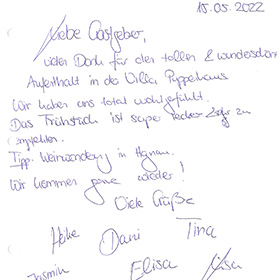 15.05.2022
Liebe Gastgeber,
vielen Dank für den tollen & wunderschön
Aufenthalt in der Villa Puppenhaus
Wir haben uns total wohlgefühlt.
Das Frühstück ist super lecker & sehr zu
empfehlen.
Tipp: Weinwanderung in Hagnau.
Wir kommen gerne wieder!
Viele Grüße
Heike Dani Tina
Jasmin Elisa Lisa